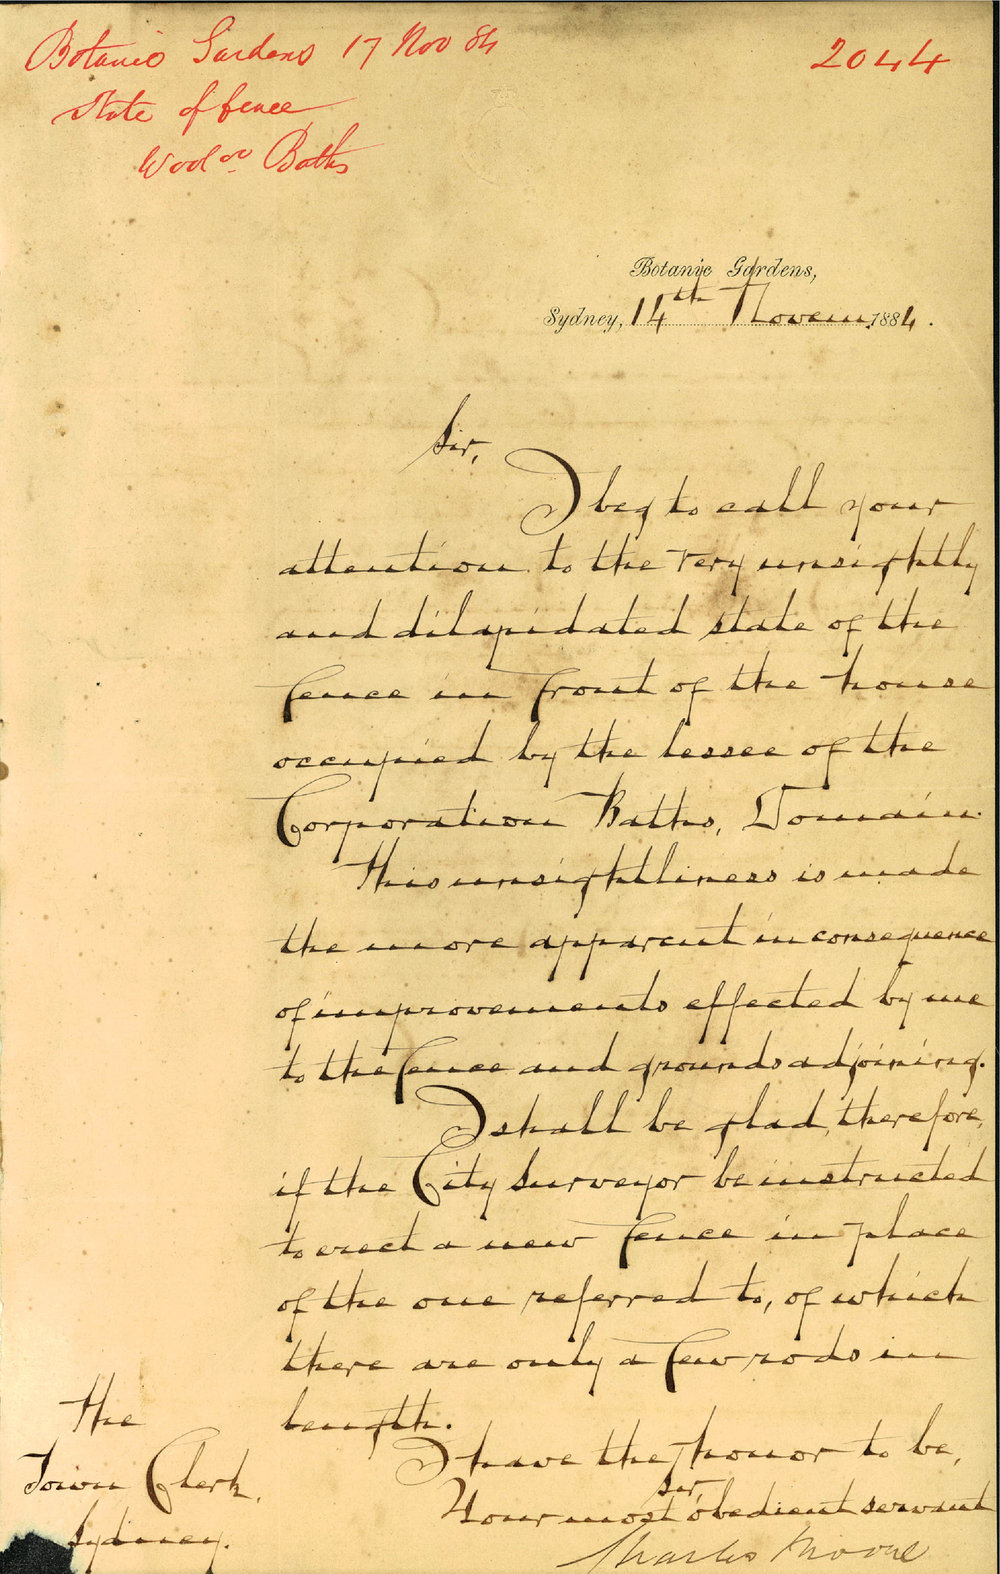 Botanic Gardens 17 Nov 84
2044
State of fence
Wool oo Baths
Botanic Gardens,
Sydney, 14th Novem 1884.
Sir,
I beg to call your
attention to the very unsightly
and dilapidated state of the
fence in front of the house
occupied by the lessee of the
Corporation Baths, Domain.
This unsightliness is made
the more apparent in consequence
of improvements effected by me
to the fence and grounds adjoining.
I shall be glad, therefore,
if the City Surveyor be instructed
to erect a new fence in place
of the one referred to, of which
there are only a few rods in
length.
I have the honor to be,
Sir,
Your most obedient servant
Charles Moore
The
Town Clerk,
Sydney.